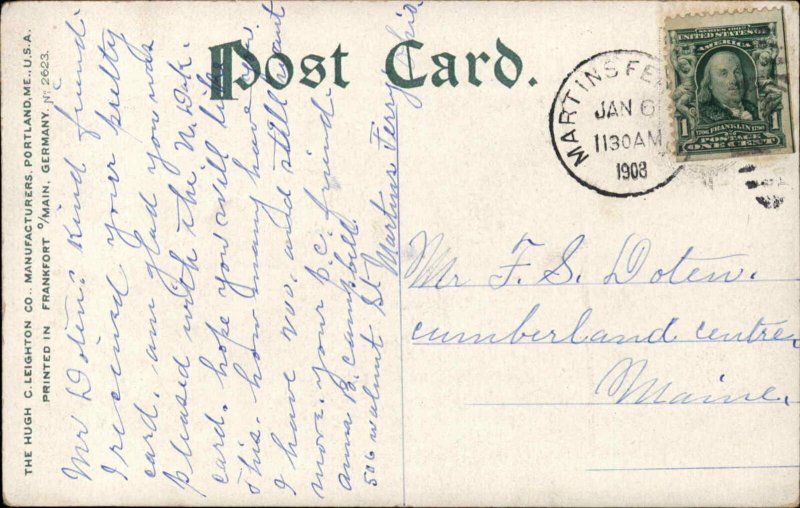 Post Card.
THE HUGH C. LEIGHTON CO., MANUFACTURERS, PORTLAND, ME., U.S.A.
PRINTED IN FRANKFORT o/MAIN, GERMANY. No 2623.
Mr Doten: kind friend:
I recived your pretty
card. am glad you was
pleased with the N. Dak.
card. hope you will like
this. how many have you
I have 200. and still want
more. your p.c. friend.
anna B. Campbell
506 walnut St Martins Ferry Ohio
MARTINS FE
JAN 6
1130 AM
1908
SERIES 1902
UNITED STATES OF
AMERICA
1706 FRANKLIN 1790
POSTAGE
1 ONE CENT 1
Mr F. S. Doten.
cumberland centre
Maine.